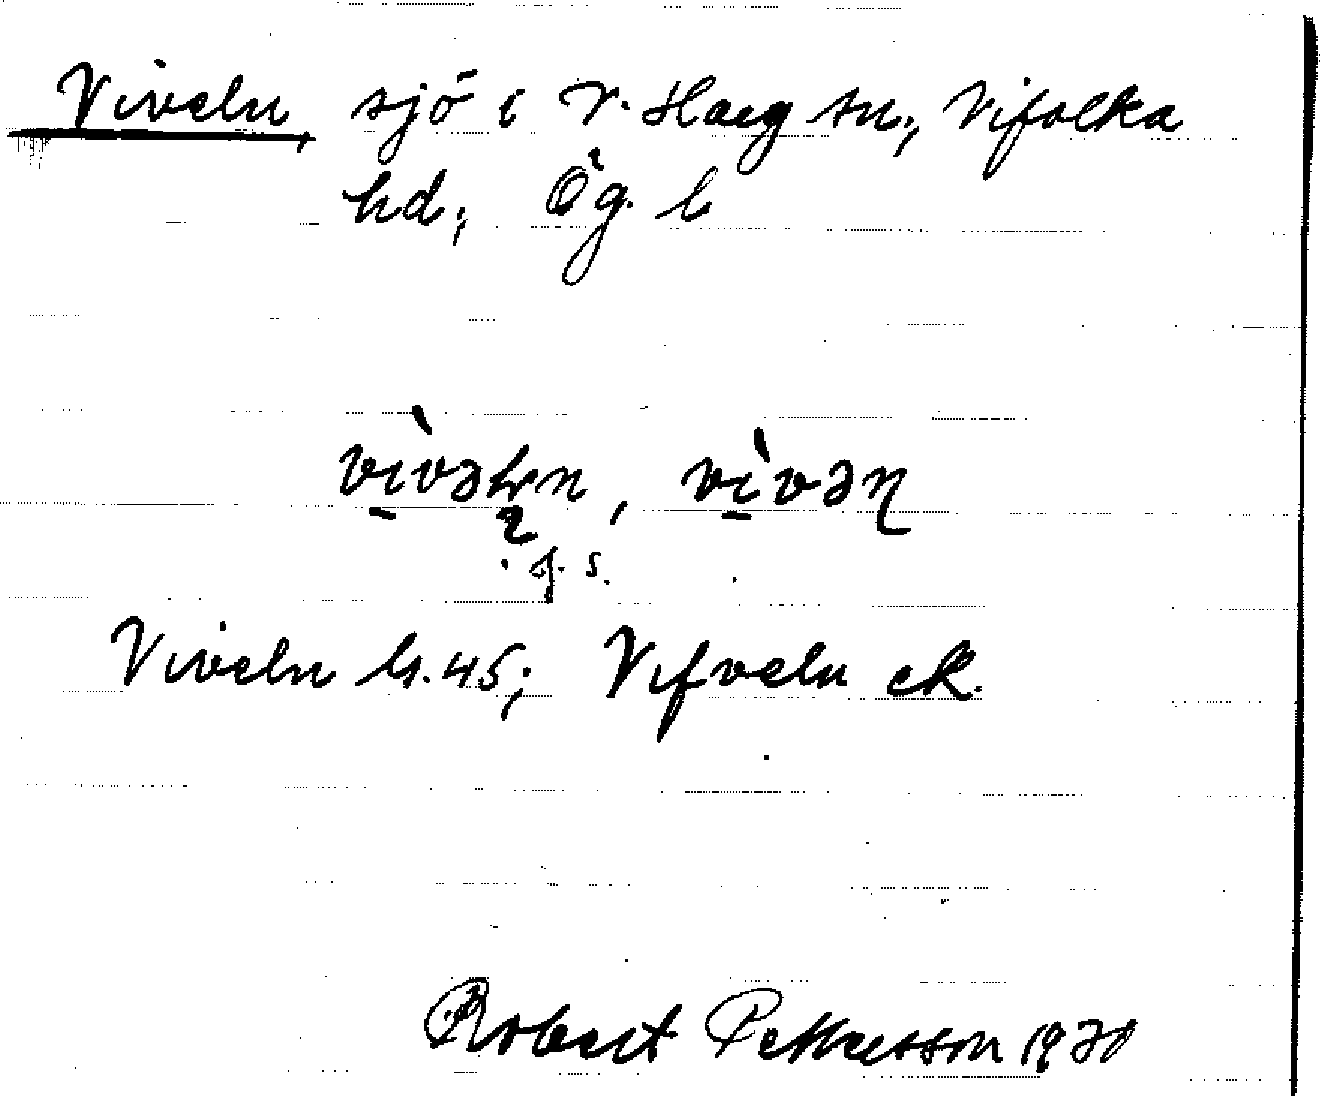 Viveln, sjö i V. Harg sn; Vifolka
hd; Ög. l
vìvəln, vìvəṇ
Viveln Gs. 45; Vifveln eK.
Robert Pettersson 1930